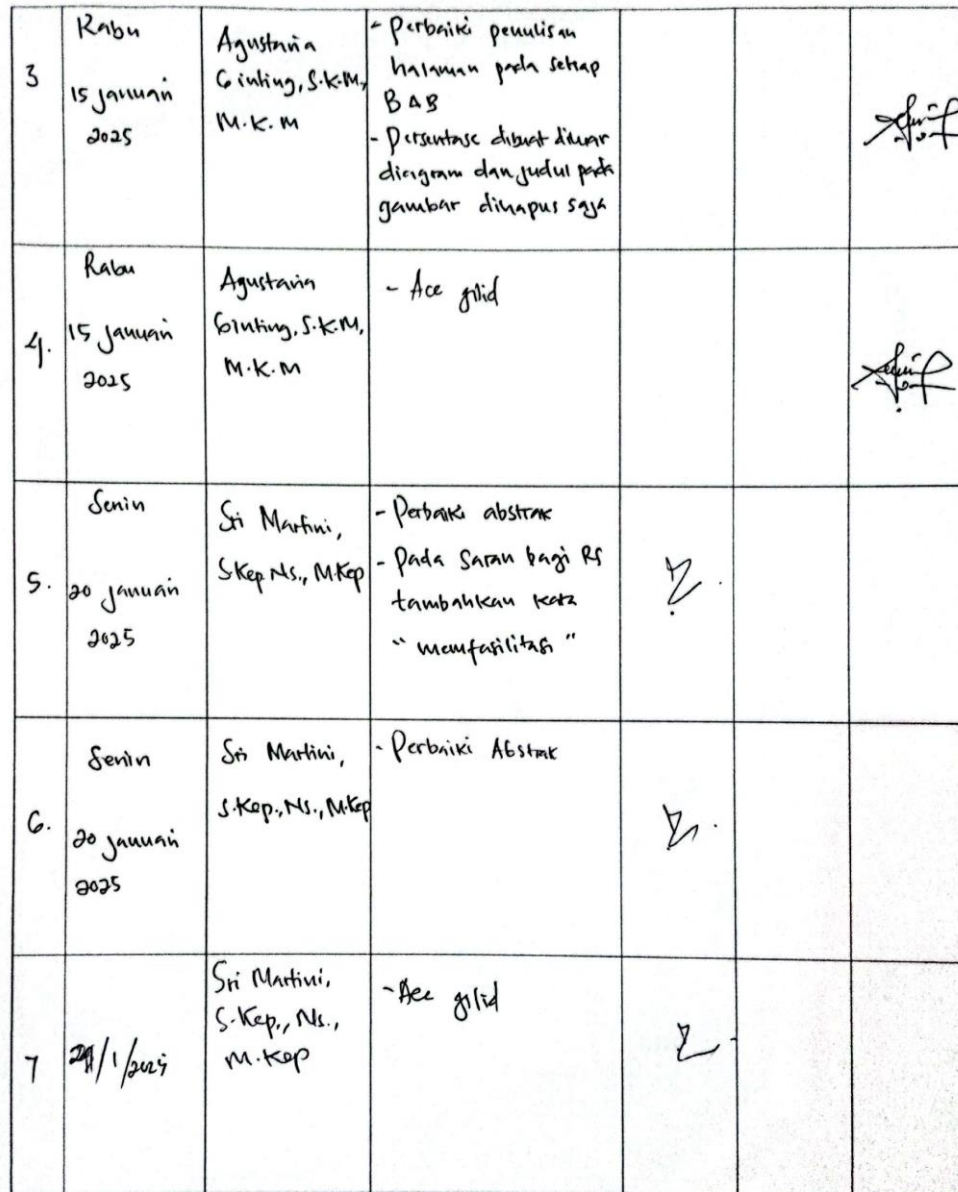 3
Rabu
15 Januari
2025
Agustaria
Ginting, S.K.M,
M.K.M
- Perbaiki penulisan
halaman pada setiap
BAB
- Persentase dibuat diluar
diagram dan judul pada
gambar dihapus saja
4.
Rabu
15 Januari
2025
Agustaria
Ginting, S.K.M,
M.K.M
- Acc jilid
5.
Senin
20 Januari
2025
Sri Martini,
S.Kep.Ns., M.Kep
- Perbaiki abstrak
- Pada Saran bagi RS
tambahkan kata
"memfasilitasi"
6.
Senin
20 Januari
2025
Sri Martini,
S.Kep., Ns., M.Kep
- Perbaiki Abstrak
7
/1/2025
Sri Martini,
S.Kep., Ns.,
M.Kep
- Acc jilid